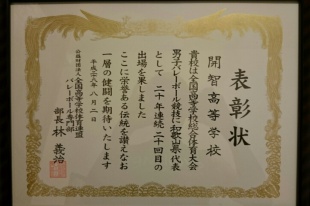 表彰状
開智高等学校
貴校は全国高等学校総合体育大会
男子バレーボール競技に和歌山県代表
として 二十年連続二十回目の
出場を果しました
ここに栄誉ある伝統を讃えなお
一層の健闘を期待いたします
平成二十八年 八月二日
公益財団法人全国高等学校体育連盟
バレーボール専門部
部長 林 義治